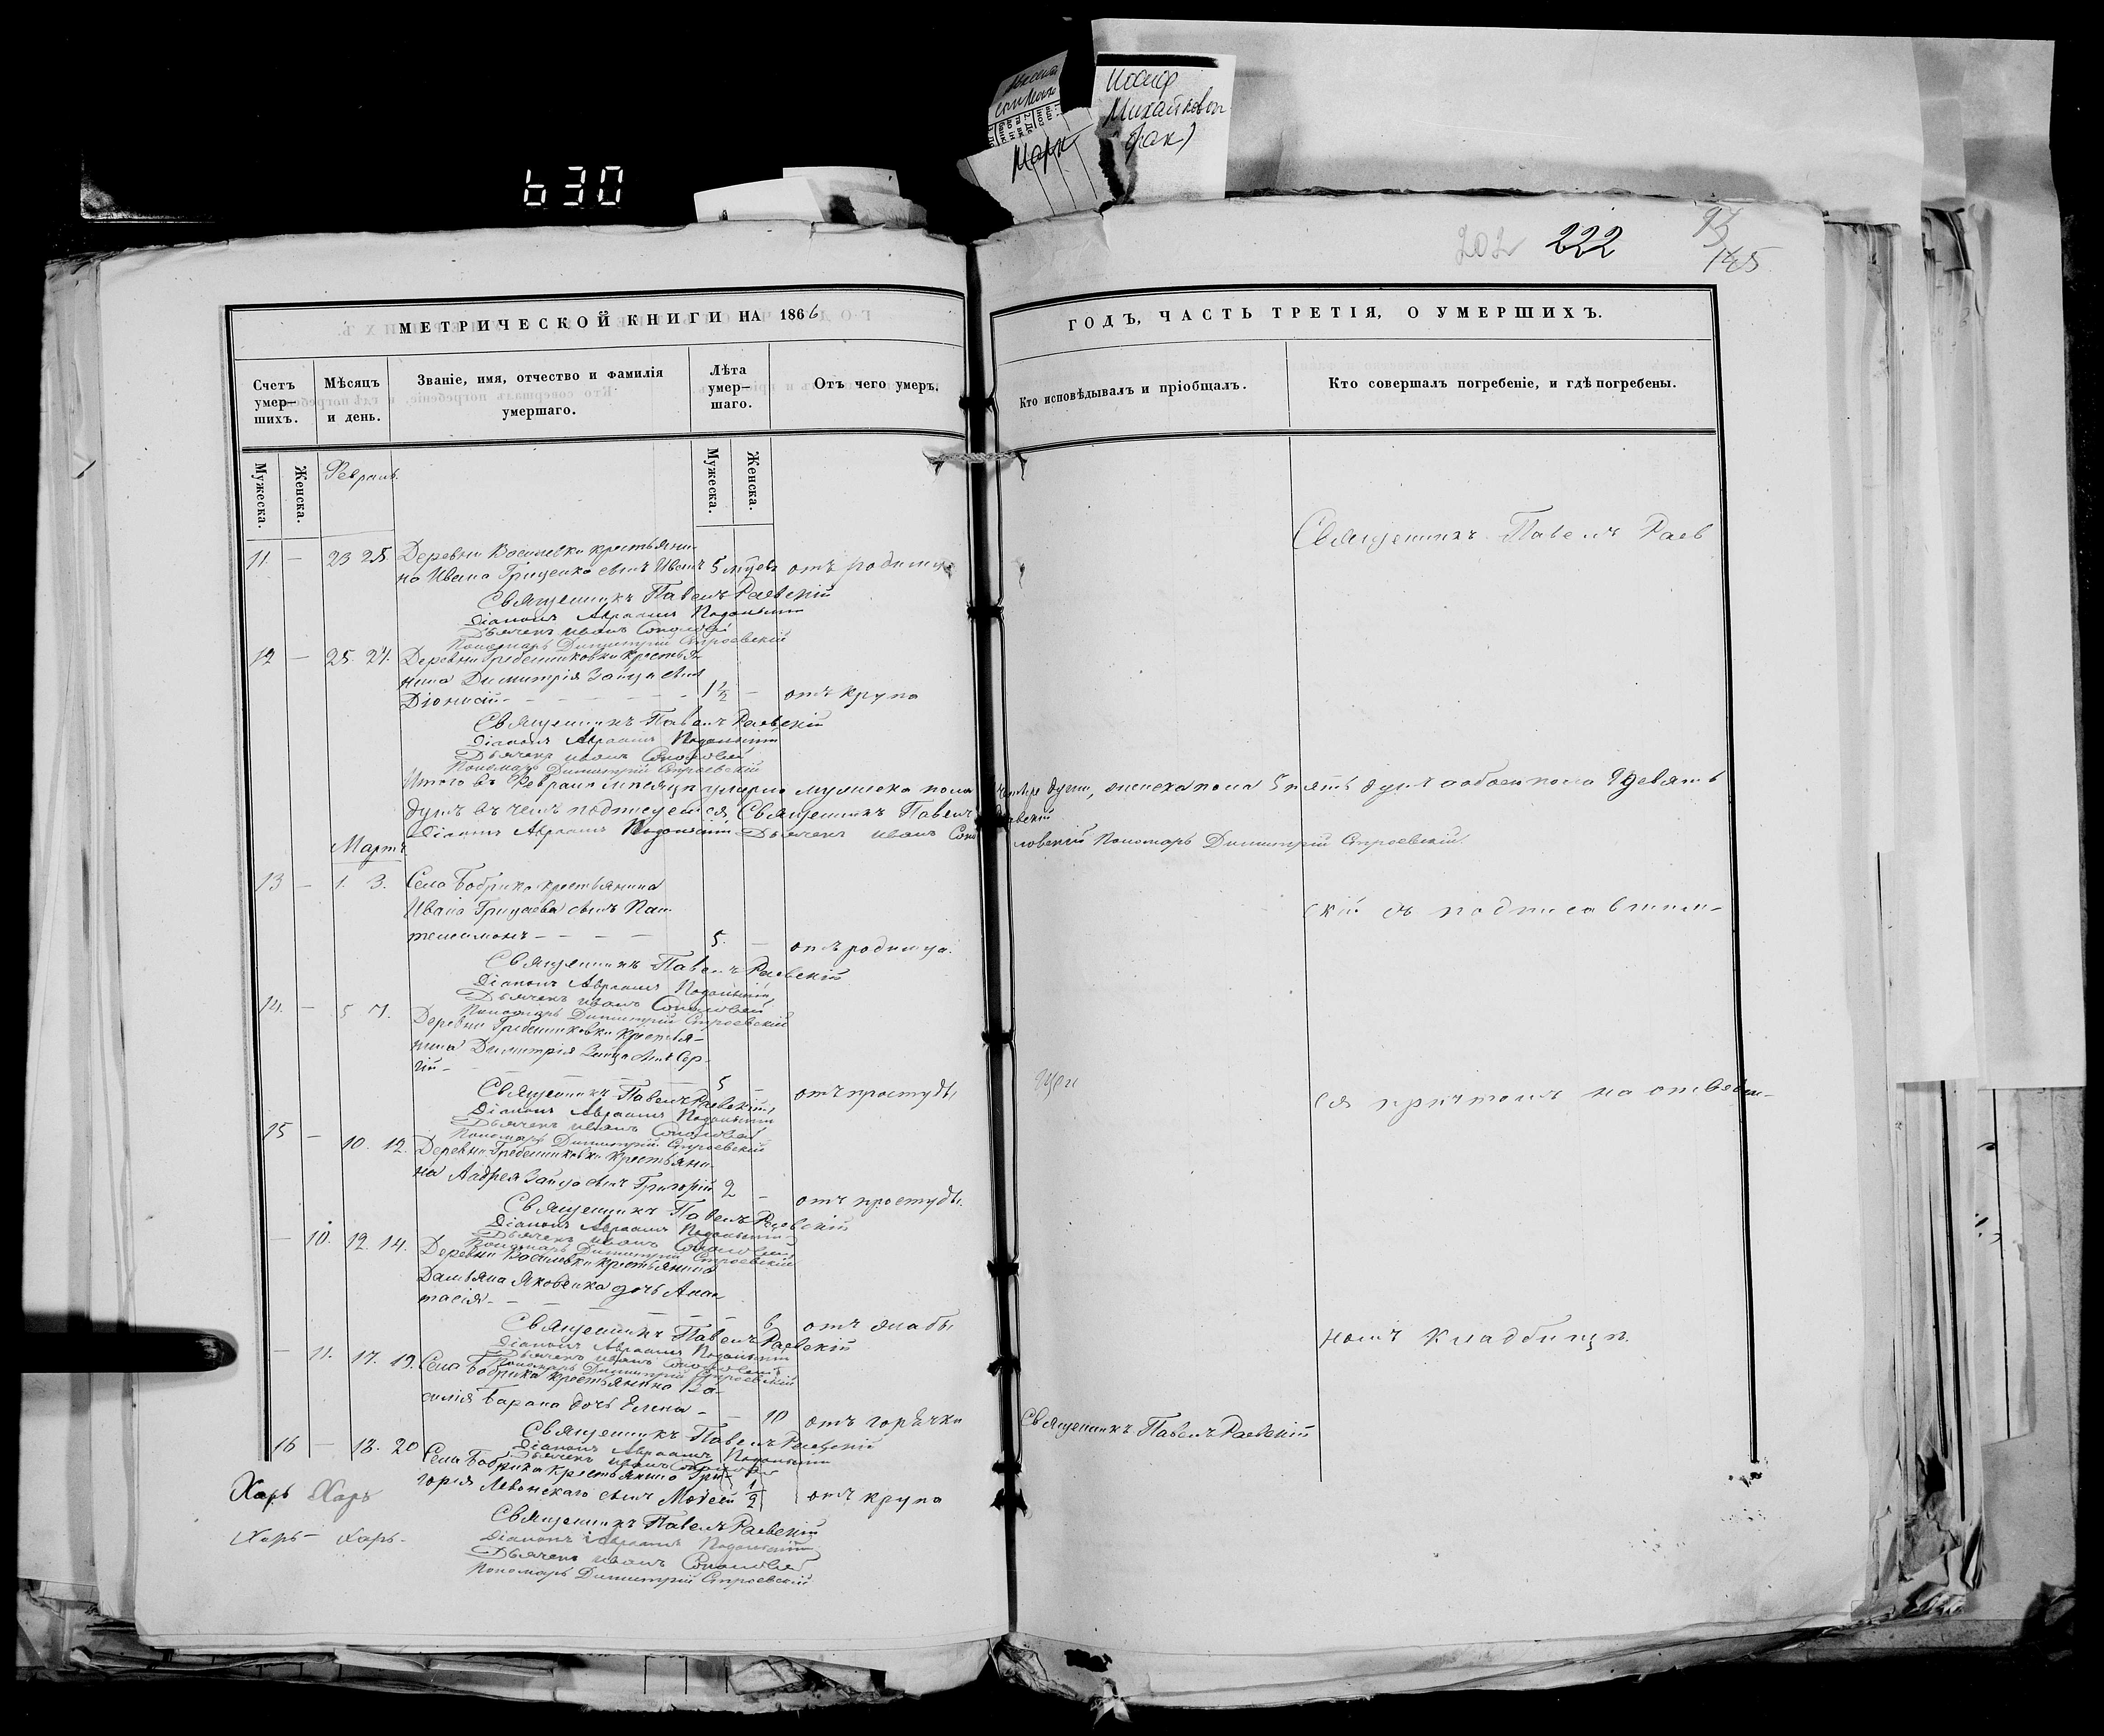 630
Іосиф
Михайлович
Марк
202 222 93
145
МЕТРИЧЕСКОЙ КНИГИ НА 1866
ГОДЪ, ЧАСТЬ ТРЕТІЯ, О УМЕРШИХЪ.
Счетъ умер-шихъ.
Мѣсяцъ и день.
Званіе, имя, отчество и фамилія умершаго.
Лѣта умер-шаго.
Отъ чего умеръ.
Кто исповѣдывалъ и пріобщалъ.
Кто совершалъ погребеніе, и гдѣ погребены.
Мужеска.
Женска.
Февраль.
Мужеска.
Женска.
Священникъ Павелъ Раев
11. — 23 25. Деревни Василевки крестьяни-
на Ивана Гриценка сынъ Иванъ 5 отъ родимца
Священникъ Павелъ Раевскій
Діаконъ Авраамъ Подольскій
Дьячекъ Иванъ
Пономарь Димитрій Строевскій
12 — 25. 27. Деревни Гребенниковки крестья-
нина Димитрія Зайца сынъ
Діонисій — 1½ — отъ крупа
Священникъ Павелъ Раевскій
Діаконъ Авраамъ Подольскій
Дьячекъ Иванъ
Пономарь Димитрій Строевскій
Итого въ Февралѣ мѣсяцѣ умерло мужеска пола четыре души, женска пола 5 пять душъ а обоего пола 9 девять
душъ въ чемъ подписуемся, Священникъ Павелъ Раевскій
Діаконъ Авраамъ Подольскій Дьячекъ Иванъ Пономарь Димитрій Строевскій
Мартъ
13 — 1. 3. Села Бобрика крестьянина
Ивана Грицаева сынъ Пан-
телеимонъ — 5. — отъ родимца.
скій съ подписавшим-
Священникъ Павелъ Раевскій
Діаконъ Авраамъ Подольскій
Дьячекъ Иванъ
Пономарь Димитрій Строевскій
14. — 5 7. Деревни Гребенниковки крестья-
нина Димитрія Зайца сынъ Сер-
гій — 5 — отъ простуды
ся причтомъ на отведен-
Священникъ Павелъ Раевскій
Діаконъ Авраамъ Подольскій
Дьячекъ Иванъ
Пономарь Димитрій Строевскій
15 — 10. 12. Деревни Гребенниковки крестьяни-
на Андрея Зайца сынъ Григорій 2 — отъ простуды.
Священникъ Павелъ Раевскій
Діаконъ Авраамъ Подольскій
Дьячекъ Иванъ
Пономарь Димитрій Строевскій
— 10. 12. 14. Деревни Василевки крестьянина
Дамьяна Яковенка дочь Анас-
тасія — 6 отъ
номъ кладбищѣ.
Священникъ Павелъ Раевскій
Діаконъ Авраамъ Подольскій
Дьячекъ Иванъ
Пономарь Димитрій Строевскій
— 11. 17. 19. Села Бобрика крестьянина Ва-
силія Барана дочь Елена — 10 отъ горячки
Священникъ Павелъ Раевскій
Священникъ Павелъ Раевскій
Діаконъ Авраамъ Подольскій
Дьячекъ Иванъ
16 — 18. 20 Села Бобрика крестьянина Гри-
горія Левонскаго сынъ Моѵсей ½ отъ крупа
Харь Харь
Харь — Харь —
Священникъ Павелъ Раевскій
Діаконъ Авраамъ Подольскій
Дьячекъ Иванъ
Пономарь Димитрій Строевскій